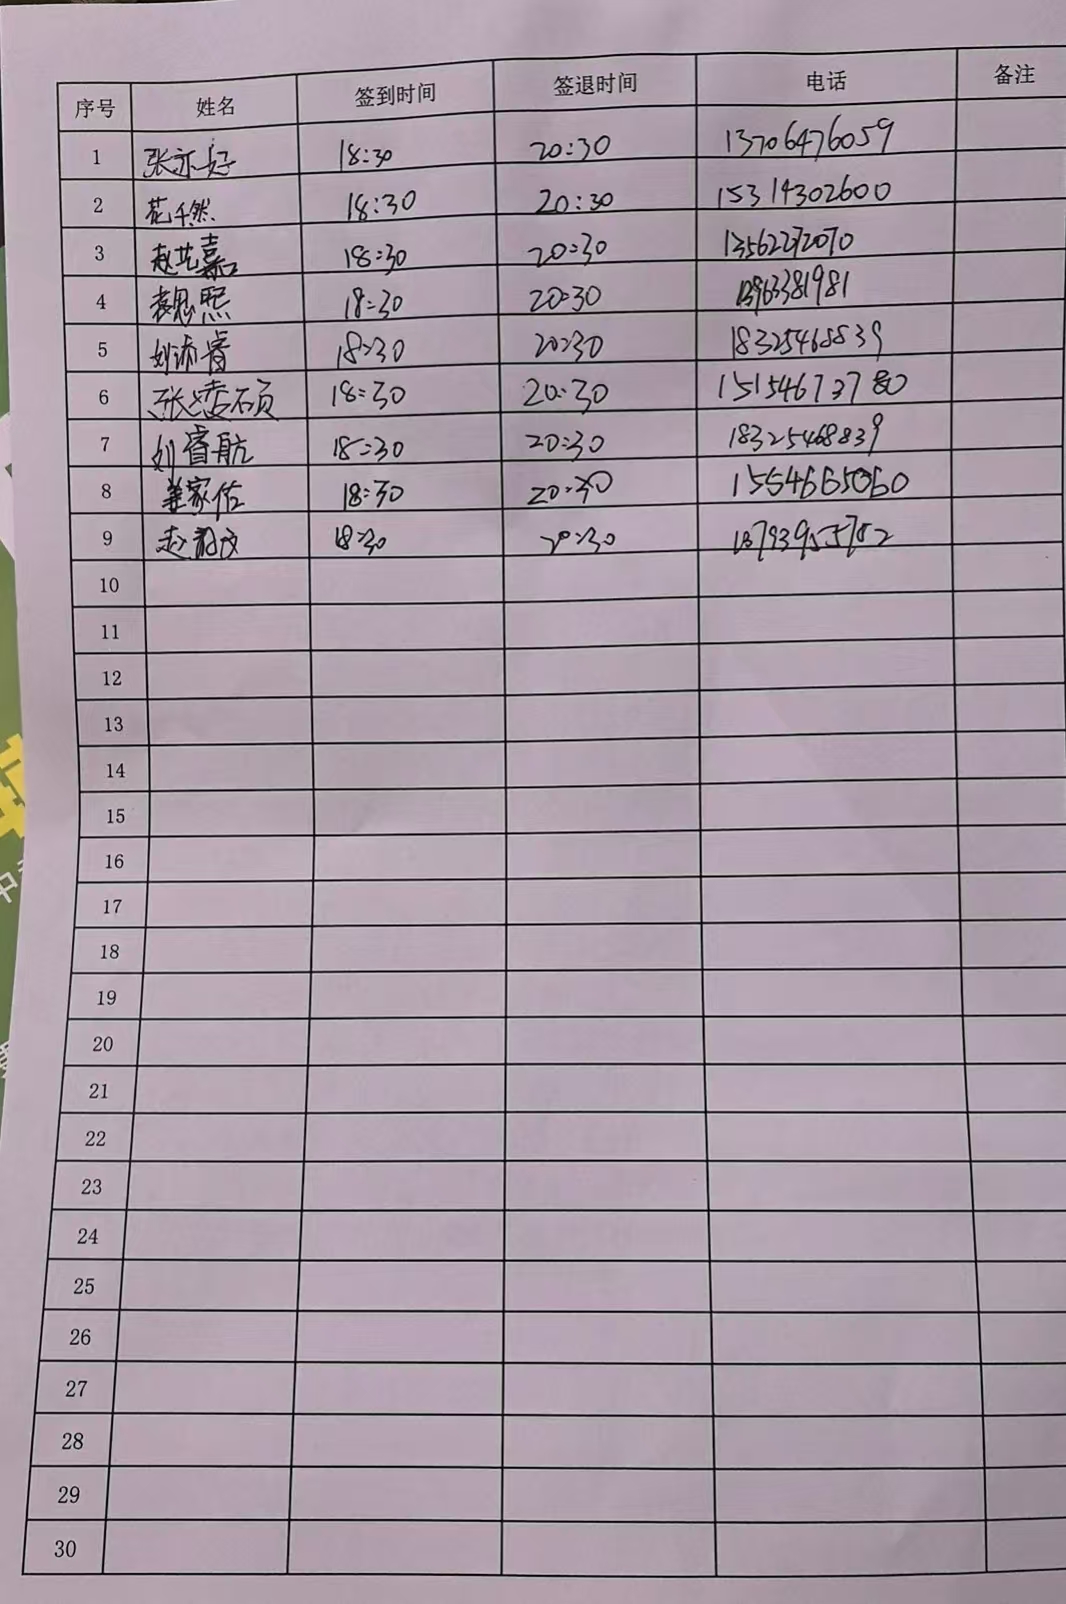 序号 姓名 签到时间 签退时间 电话 备注
1 张亦好 18:30 20:30 13706476059
2 花千然 18:30 20:30 15314302600
3 赵艺嘉 18:30 20:30 13562272070
4 袁思熙 18:30 20:30 13963381981
5 刘沛睿 18:30 20:30 18325468839
6 张硕 18:30 20:30 15154673780
7 刘睿航 18:30 20:30 18325468839
8 姜家佑 18:30 20:30 1554665060
9 赵 18:30 20:30
10
11
12
13
14
15
16
17
18
19
20
21
22
23
24
25
26
27
28
29
30